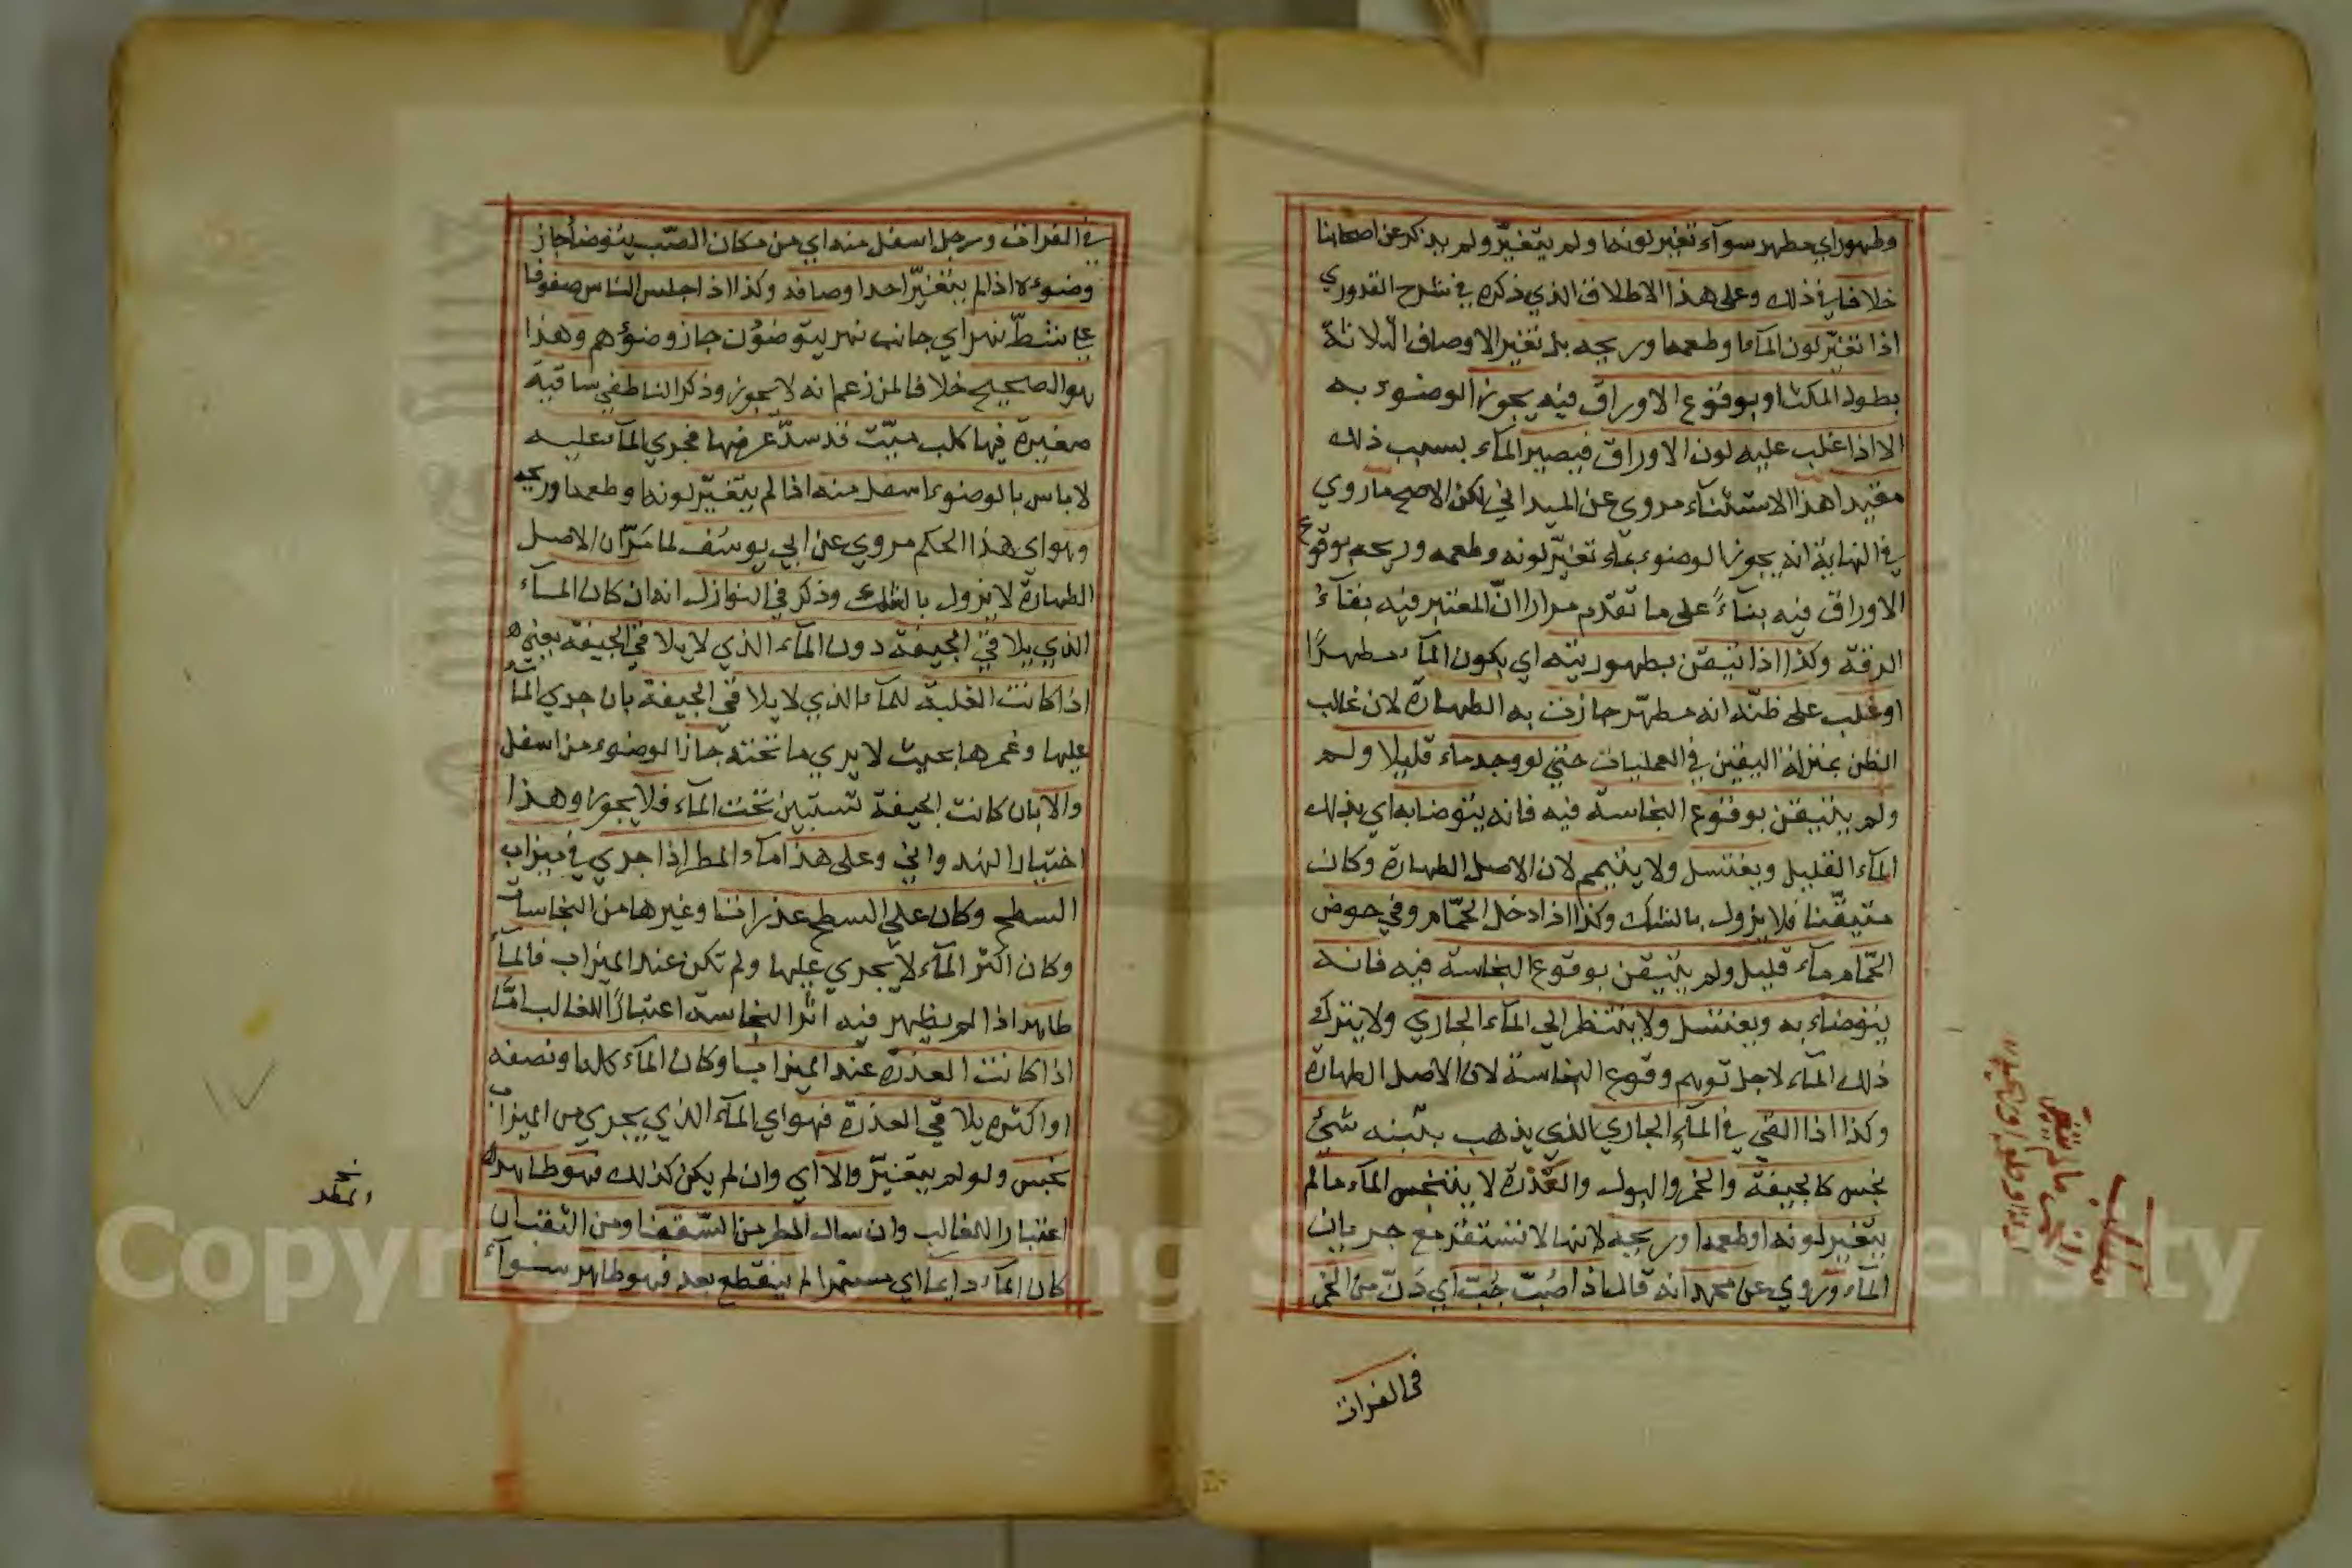 وطهور اي مطهر سوآء تغير لونها ولم يتغيّر ولم يذكر عن اصحابنا
خلافا في ذلك وعلى هذا الاطلاق الذي ذكره في شرح القدوري
اذا تغيّر لون المآء وطعمه وريحه بل تغير الاوصاف الثلاثة
بطول المكث او بوقوع الاوراق فيه يجوز الوضوء به
الا اذا غلب عليه لون الاوراق فيصير المآء بسبب ذلك
مقيدا هذا الاستثنآء مروي عن الميداني لكن الاصح ما روي
في النهاية انه يجوز الوضوء بماء تغيّر لونه وطعمه وريحه بوقوع
الاوراق فيه بنآءً على ما تقدّم مرارا انّ المعتبر فيه بقآءُ
الرقة وكذا اذا تيقن بطهوريته اي بكون المآء مطهرًا
او غلب على ظنّه انه مطهّر جازت به الطهارة لان غالب
الظن بمنزلة اليقين في العمليات حتى لو وجد ماء قليلا ولم
ولم يتيقن بوقوع النجاسة فيه فانه يتوضا به اي بذلك
المآء القليل ويغتسل ولا يتيمم لان الاصل الطهارة وكان
متيقّنا فلا يزول بالشك وكذا اذا دخل الحمّام وفي حوض
الحمّام مآء قليل ولم يتيقن بوقوع النجاسة فيه فانه
يتوضاء به ويغتسل ولا ينتظر الى المآء الجاري ولا يترك
ذلك المآء لاجل توهم وقوع النجاسة لان الاصل الطهارة
وكذا اذا القي في المآء الجاري الذي يذهب بتبنه شئ
نجس كالجيفة والخمر والبول والعَذرة لا يتنجس المآء ما لم
يتغير لونه او طعمه او ريحه لانها لا تستقر مع جريان
المآء وروي عن محمد انه قال اذا صُبّ حُبّ اي دَنّ من الخمر
في الفرات
في الفرات ورجل اسفل منه اي من مكان الصّب يتوضأ جاز
وضوءه اذا لم يتغيّر احد اوصافه وكذا اذا جلس الناس صفوفا
على شطّ نهر اي جانب نهر يتوضؤن جاز وضؤهم وهذا
هو الصحيح خلافا لمن زعم انه لا يجوز وذكر الناطفي ساقية
صغيرة فيها كلب ميّت قد سدّ عرضها فجري المآء عليه
لا باس بالوضوء اسفل منه اذا لم يتغيّر لونه او طعمه او ريحه
وهو اي هذا الحكم مروي عن ابي يوسُف لما مَرّ ان الاصل
الطهارة لا يزول بالشك وذكر في النوازل انه ان كان المآء
الذي يلاقي الجيفة دون المآء الذي لا يلاقي الجيفة يعني
اذا كانت الغلبة للمآء الذي لا يلاقي الجيفة بان جري المآء
عليها وغمرها بحيث لا يري ما تحته جاز الوضوء من اسفل
والا بان كانت الجيفة تستبين تحت المآء فلا يجوز وهذا
اختيار الهندواني وعلى هذا مآء المطر اذا جري في ميزاب
السطح وكان على السطح عذرات وغيرها من النجاسات
وكان اكثر المآء لا يجري عليها ولم تكن عند الميزاب فالمآء
طاهر اذا لم يظهر فيه اثر النجاسة اعتبارًا للغالب امّا
اذا كانت العذرة عند الميزاب وكان المآء كله او نصفه
او اكثره يلاقي العذرة فهو اي المآء الذي يجري من الميزاب
نجس ولو لم يتغيّر والا اي وان لم يكن كذلك فهو طاهر
اعتبارا للغالب وان سال المطر من السّقف ومن الثقبان
كان المآء دايما اي مستمرا لم ينقطع بعد فهو طاهر سوآء
Copyright King S ersity